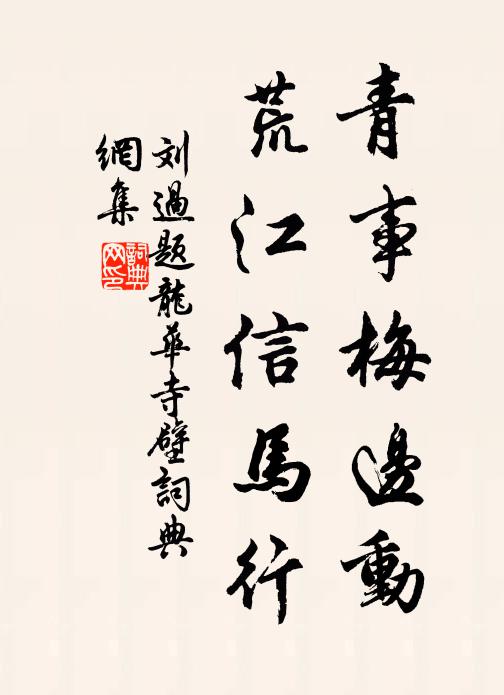 青事梅邊動
荒江信馬行
刘過题龍華寺壁詞典
網集
詞典网印